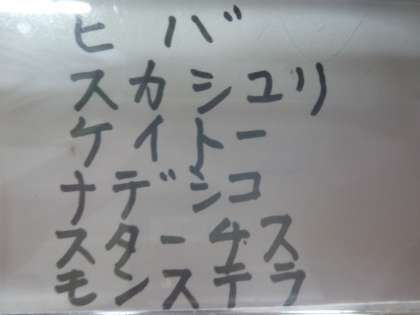 ヒバ
スカシユリ
ケイトー
ナデシコ
スターチス
モンステラ